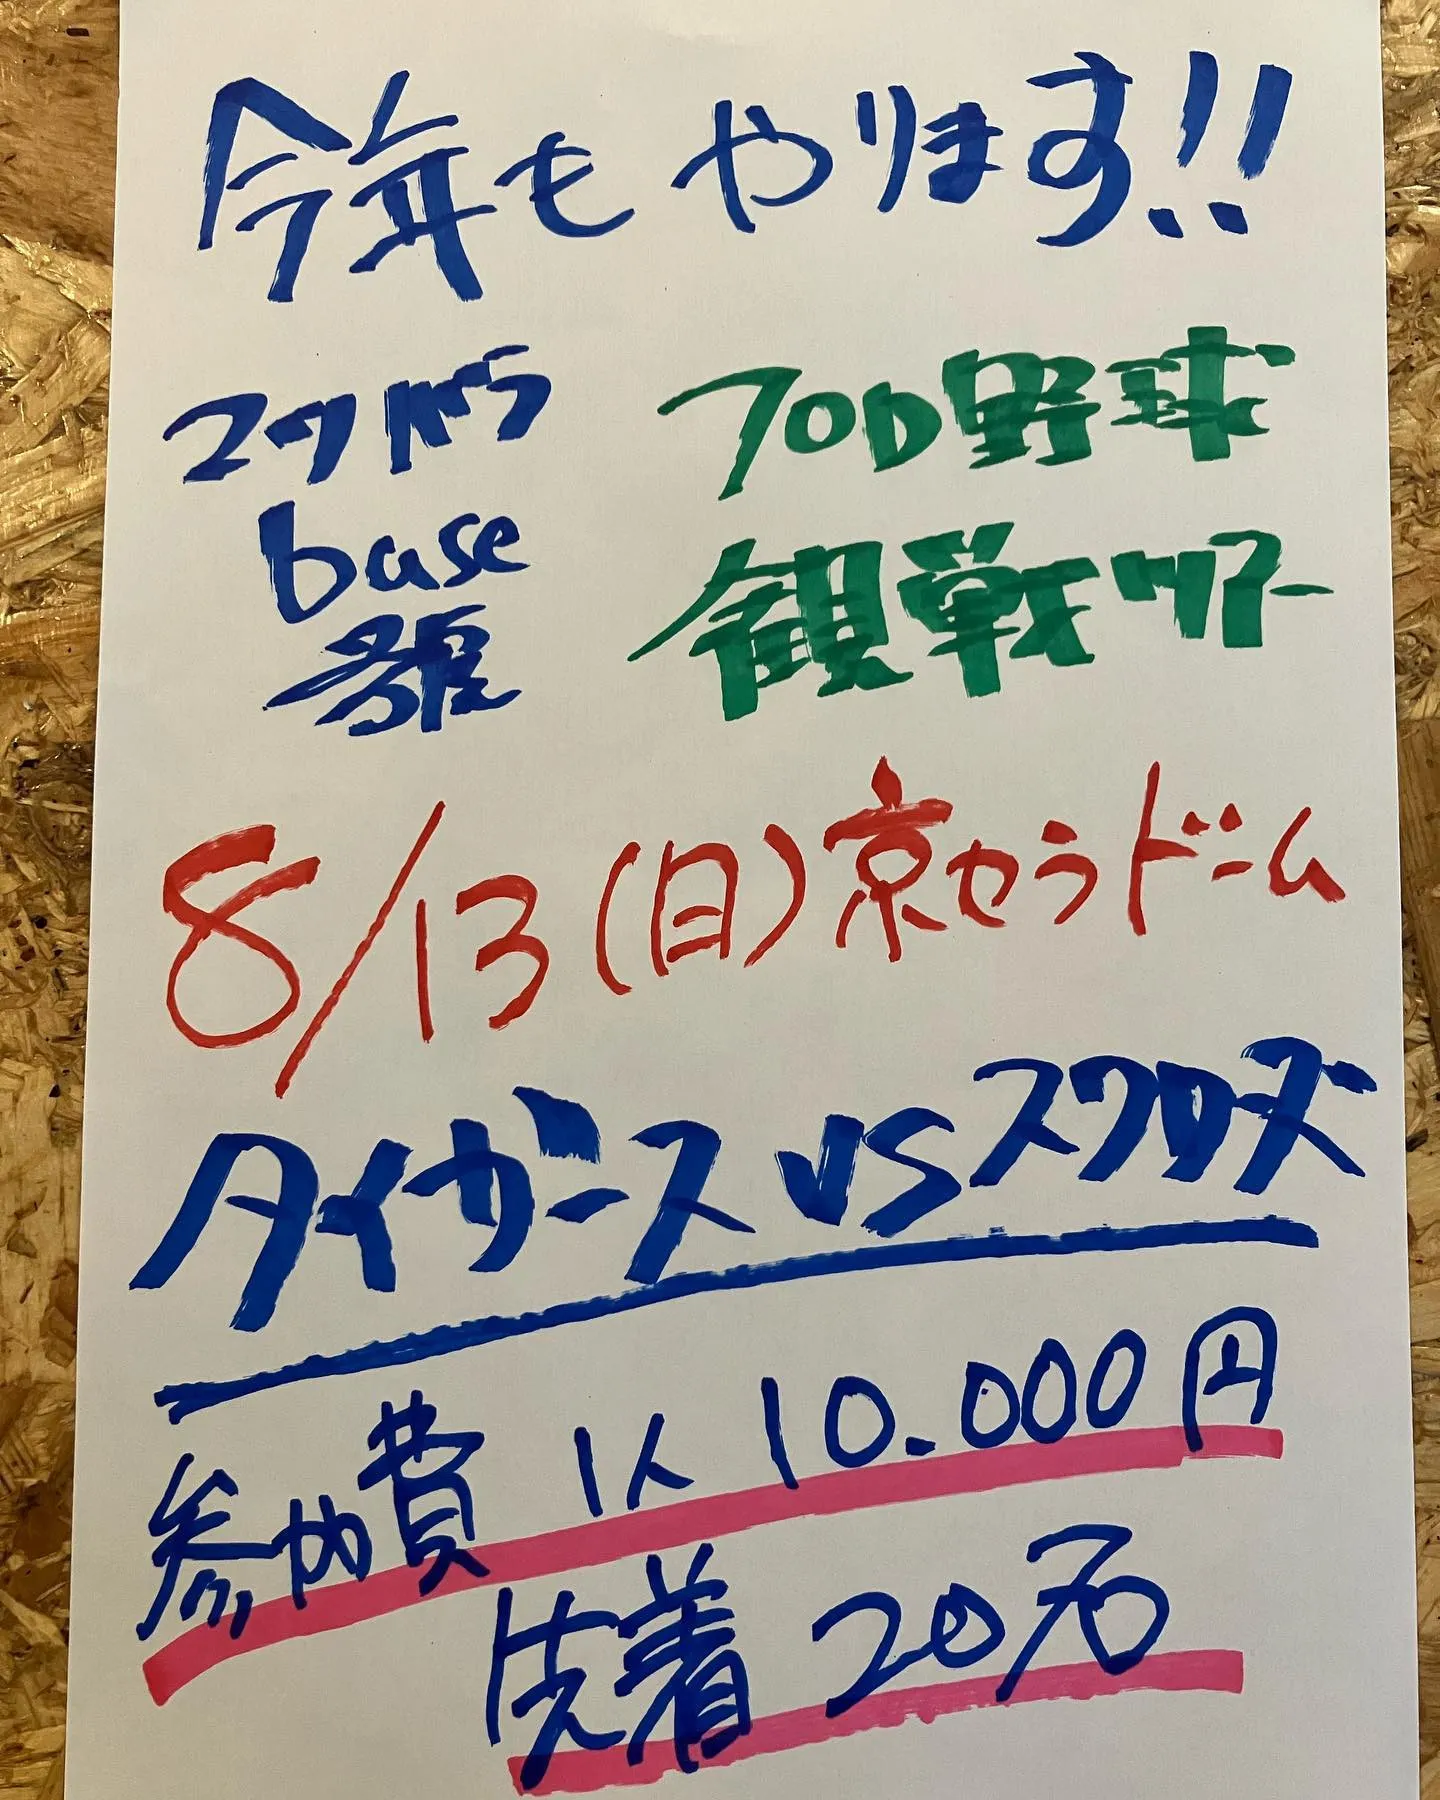 今年もやります!!
base
プロ野球
観戦ツアー
8/13(日)京セラドーム
タイガースvsスワローズ
参加費 1人 10.000円
先着 20名